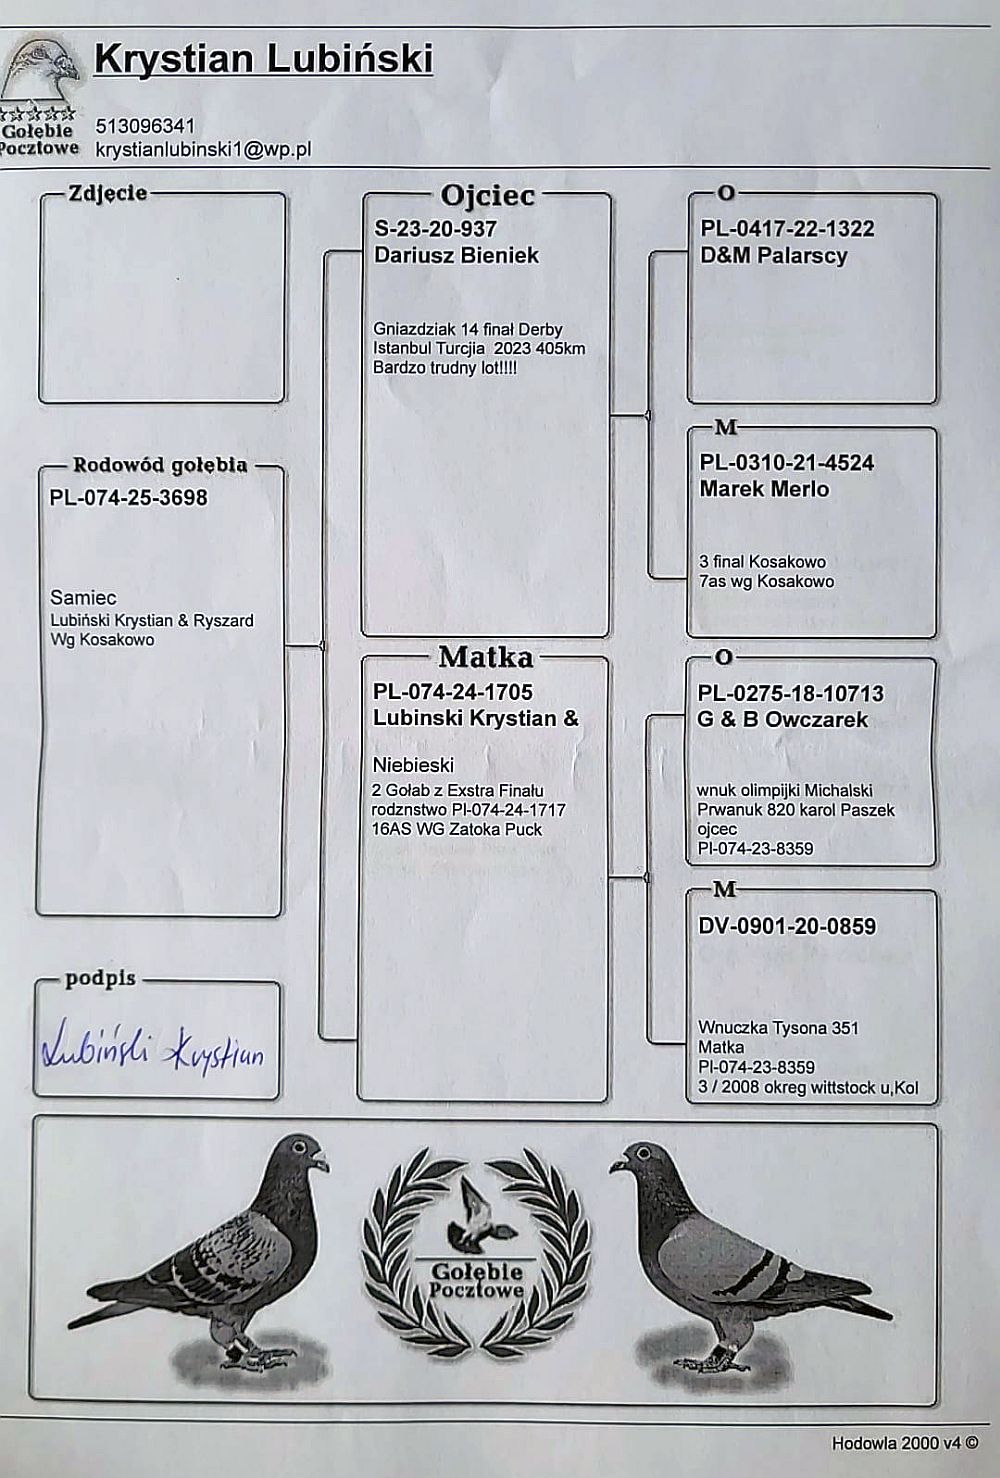 Krystian Lubiński
Gołębie
Pocztowe
513096341
krystianlubinski1@wp.pl
Zdjęcie
Rodowód gołębia
PL-074-25-3698
Samiec
Lubiński Krystian & Ryszard
Wg Kosakowo
podpis
Lubiński Krystian
Ojciec
S-23-20-937
Dariusz Bieniek
Gniazdziak 14 finał Derby
Istanbul Turcjia 2023 405km
Bardzo trudny lot!!!!
Matka
PL-074-24-1705
Lubinski Krystian &
Niebieski
2 Gołab z Exstra Finału
rodznstwo Pl-074-24-1717
16AS WG Zatoka Puck
O
PL-0417-22-1322
D&M Palarscy
M
PL-0310-21-4524
Marek Merlo
3 final Kosakowo
7as wg Kosakowo
O
PL-0275-18-10713
G & B Owczarek
wnuk olimpijki Michalski
Prwanuk 820 karol Paszek
ojcec
Pl-074-23-8359
M
DV-0901-20-0859
Wnuczka Tysona 351
Matka
Pl-074-23-8359
3 / 2008 okreg wittstock u,Kol
Gołębie
Pocztowe
Hodowla 2000 v4 ©